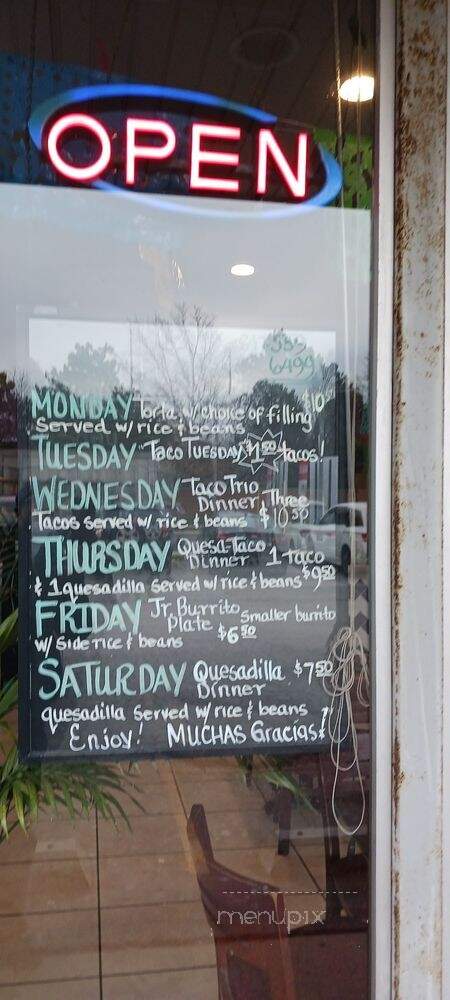 OPEN
533
6499
MONDAY Torta w/ choice of filling $10
Served w/ rice & beans
TUESDAY "Taco TUESDAY" $1.50 tacos!
WEDNESDAY Taco Trio
Dinner, Three
Tacos Served w/ rice & beans $10.50
THURSDAY Quesa-Taco
Dinner 1 taco
& 1 quesadilla served w/ rice & beans $9.50
FRIDAY Jr. Burrito
Plate Smaller burrito
w/ side rice & beans $6.50
SATURDAY Quesadilla $7.50
Dinner
quesadilla served w/ rice & beans
Enjoy! MUCHAS Gracias!
menupix